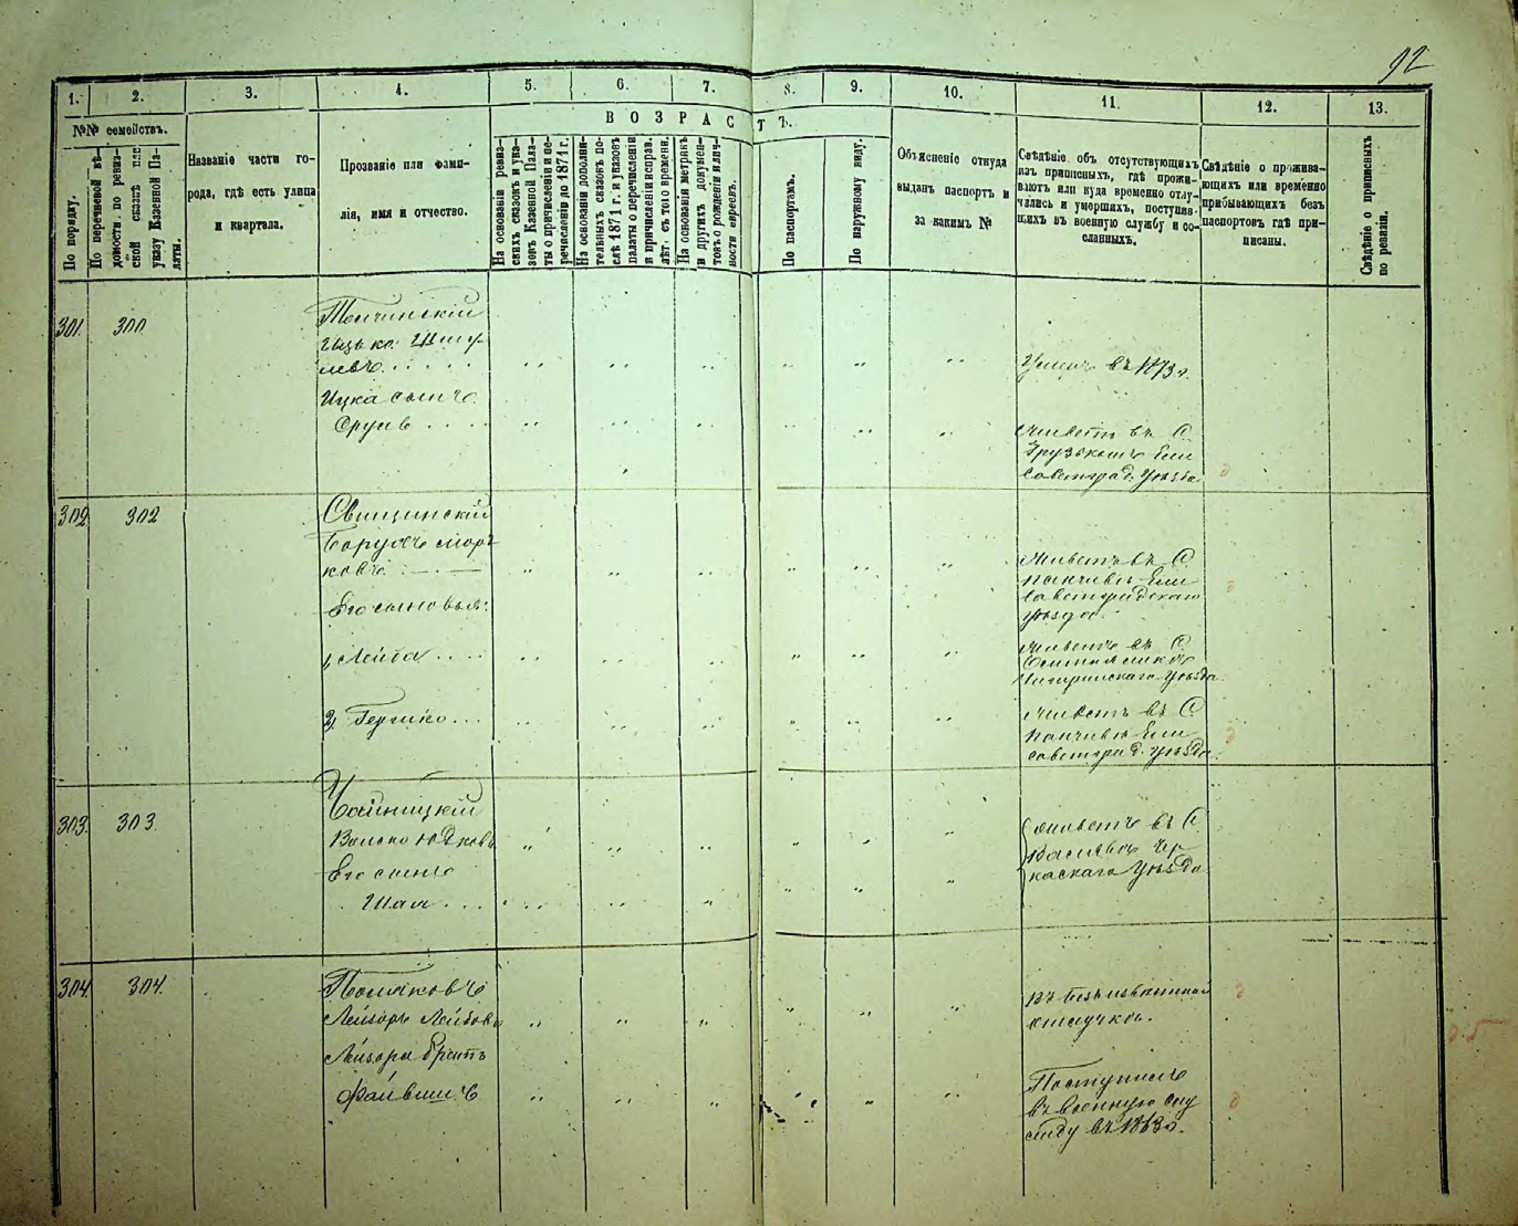 92
1. 2. 3. 4. 5. 6. 7. 8. 9. 10. 11. 12. 13.
№№ семействъ.
По порядку.
По перечневой вѣ-
домости по ревиз-
ской сказкѣ или
указу Казенной Па-
латы.
Названіе части го-
рода, гдѣ есть улица
и квартала.
Прозваніе или фами-
лія, имя и отчество.
ВОЗРАСТЪ.
На основаніи ревиз-
скихъ сказокъ и ука-
зовъ Казенной Пала-
ты о причисленіи и пе-
речисленіи до 1871 г.
На основаніи дополни-
тельныхъ сказокъ по-
слѣ 1871 г. и указовъ
палаты о перечисленіи
и причисленіи исправ.
лѣт. съ того времени.
На основаніи метрикъ
и другихъ докумен-
товъ о рожденіи и лич-
ности евреевъ.
По паспортамъ.
По наружному виду.
Объясненіе откуда
выданъ паспортъ и
за какимъ №
Свѣдѣніе объ отсутствующихъ
изъ приписныхъ, гдѣ прожи-
ваютъ или куда временно отлу-
чались и умершихъ, поступив-
шихъ въ военную службу и со-
сланныхъ.
Свѣдѣніе о прожива-
ющихъ или временно
прибывающихъ безъ
паспортовъ гдѣ при-
писаны.
Свѣдѣніе о приписныхъ
по ревизіи.
301. 300
Ицько Шму-
левъ
Умеръ въ 1873 г.
Ицка сынъ
Сруль
Живетъ въ С.
Грузькомъ Ели
саветград. Уѣзда
302 302
Свицинскій
Борухъ Морт-
ковъ
Живетъ въ С.
Панчивѣ Ели
саветградскаго
уѣзда.
Его сыновья:
1, Лейба
Живетъ въ С.
Чигиринскаго уѣзда.
2, Гершко
Живетъ въ С.
Панчивѣ Ели
саветград. уѣзда.
303. 303.
Волько Юдковъ
Живетъ въ С.
каскаго Уѣзда
Его сынъ
304. 304.
Поляковъ
Лейзоръ Лейбовъ
въ безъизвѣстной
отлучкѣ.
Лейзора братъ
Файвишъ
Поступилъ
въ военную слу
жбу въ 1863 г.